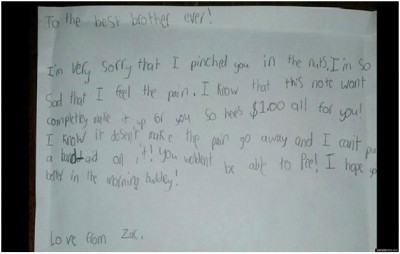 To the best brother ever!
I'm very sorry that I pinched you in the nuts. I'm so
sad that I feel the pain. I know that this note wont
completley make it up for you so here's $1.00 all for you!
I know it doesn't make the pain go away and I can't put
a band-aid on it! You wouldn't be able to Pee! I hope you
better in the morning buddy!
Love from Zak.